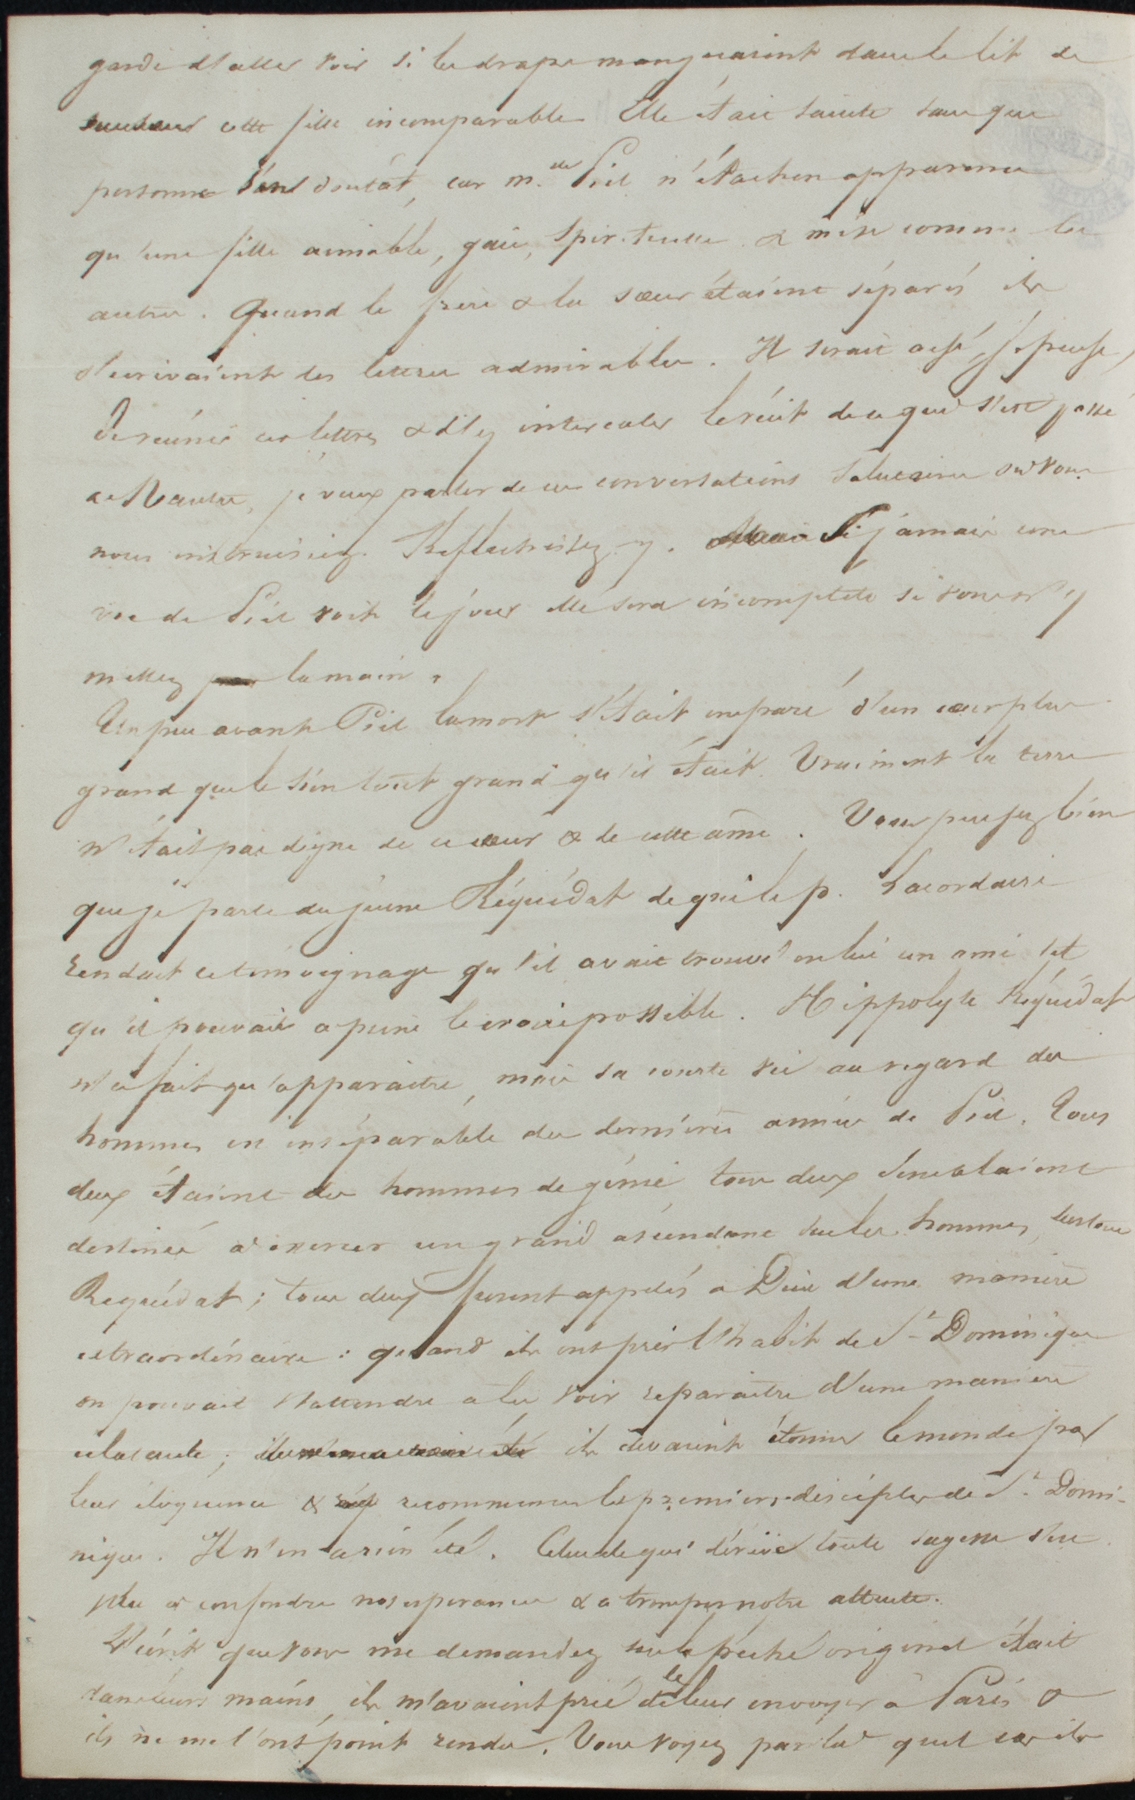 garde d'aller voir si les draps manquaient dans le lit de
cette fille incomparable Elle était sainte sans que
personne s'en doutât, car m.elle Piel n'était en apparence
qu'une fille aimable, gaie, spirituelle & mise comme les
autres. Quand le frère & la sœur étaient séparés ils
s'écrivaient des lettres admirables. Il serait aisé, je pense,
de réunir ces lettres & d'y intercaler le récit de ce qui s'est passé
a Nantes, je veux parler de ces conversations dont vous
nous instruisiez. Réfléchissez-y. Si jamais une
vie de Piel voit le jour elle sera incomplète si vous n'y
mettez la main.
Un peu avant Piel la mort s'était emparé d'un cœur plus
grand que le sien tout grand qu'il était. Vraiment la terre
n'était pas digne de ce cœur & de cette âme. Vous pensez bien
que je parle du jeune Réquédat de qui le p. Lacordaire
rendait ce témoignage qu'il avait trouvé en lui un ami tel
qu'il pouvait a peine le croire possible. Hippolyte Réquédat
n'a fait qu'apparaitre, mais sa courte vie au regard des
hommes est inséparable des dernières années de Piel. Tous
deux étaient des hommes de génie tous deux semblaient
destinés a exercer un grand ascendant sur les hommes, surtout
Requédat; tous deux furent appelés a Dieu d'une manière
extraordinaire: quand ils ont pris l'habit de St Dominique
on pouvait s'attendre a les voir reparaitre d'une manière
éclatante; ils devaient étonner le monde par
leur éloquence & recommencer les premiers disciples de St Domi-
nique. Il n'en a rien été. Celui de qui dérive toute sagesse s'est
plu a confondre nos esperances & a tromper notre attente.
L'écrit que vous me demandez sur le péché originel était
dans leurs mains, ils m'avaient prié de le leur envoyer à Paris &
ils ne me l'ont point rendu. Vous voyez par là quel cas ils